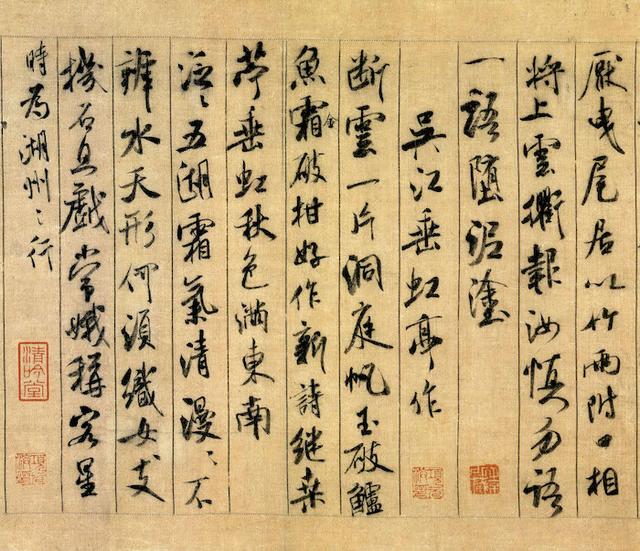 厭曳尾居以竹兩附口相
將上雲衢報汝慎勿語
一語墮泥塗
吳江垂虹亭作
断雲一片洞庭帆玉破鱸
魚霜金破柑好作新詩继桑
苧垂虹秋色満東南
泛〻五湖霜氣清漫〻不
辨水天形何須織女支
機石且戲常娥稱客星
時為湖州之行
清吟堂